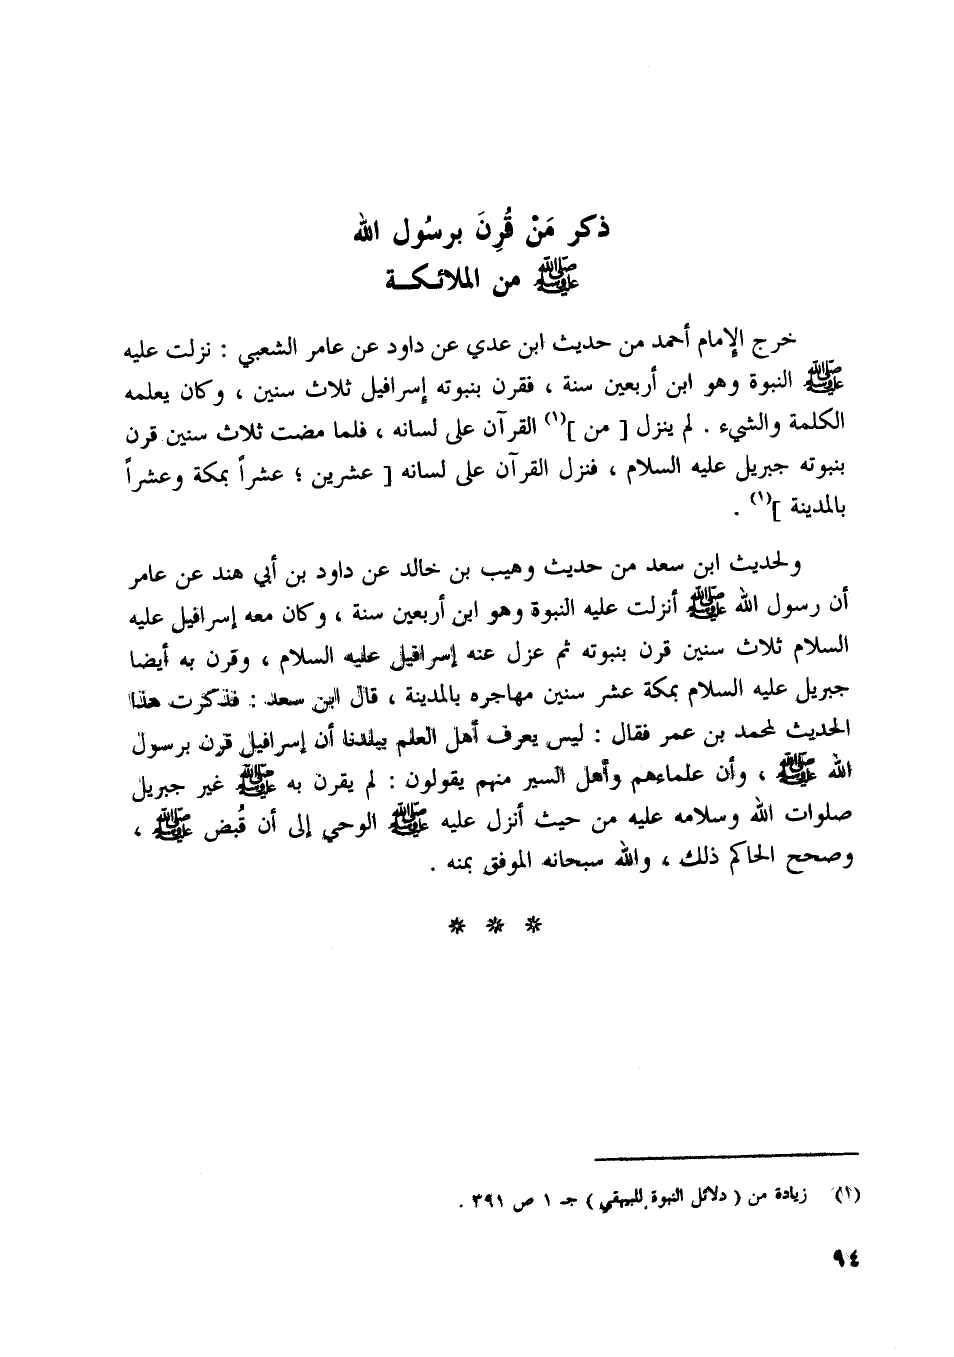 ذكر مَنْ قُرِنَ برسُول الله
ﷺ من الملائـكـة
خرج الإمام أحمد من حديث ابن عدي عن داود عن عامر الشعبي : نزلت عليه
ﷺ النبوة وهو ابن أربعين سنة ، فقرن بنبوته إسرافيل ثلاث سنين ، وكان يعلمه
الكلمة والشيء . لم ينزل [ من ]⁽١⁾ القرآن على لسانه ، فلما مضت ثلاث سنين قرن
بنبوته جبريل عليه السلام ، فنزل القرآن على لسانه [ عشرين ؛ عشراً بمكة وعشراً
بالمدينة ]⁽١⁾ .
ولحديث ابن سعد من حديث وهيب بن خالد عن داود بن أبي هند عن عامر
أن رسول الله ﷺ أنزلت عليه النبوة وهو ابن أربعين سنة ، وكان معه إسرافيل عليه
السلام ثلاث سنين قرن بنبوته ثم عزل عنه إسرافيل عليه السلام ، وقرن به أيضا
جبريل عليه السلام بمكة عشر سنين مهاجره بالمدينة ، قال ابن سعد : فذكرت هذا
الحديث لمحمد بن عمر فقال : ليس يعرف أهل العلم ببلدنا أن إسرافيل قرن برسول
الله ﷺ ، وأن علماءهم وأهل السير منهم يقولون : لم يقرن به ﷺ غير جبريل
صلوات الله وسلامه عليه من حيث أنزل عليه ﷺ الوحي إلى أن قُبض ﷺ ،
وصحح الحاكم ذلك ، والله سبحانه الموفق بمنه .
* * *
(١) زيادة من ( دلائل النبوة للبيهقي ) جـ ١ ص ٣٩١ .
٩٤